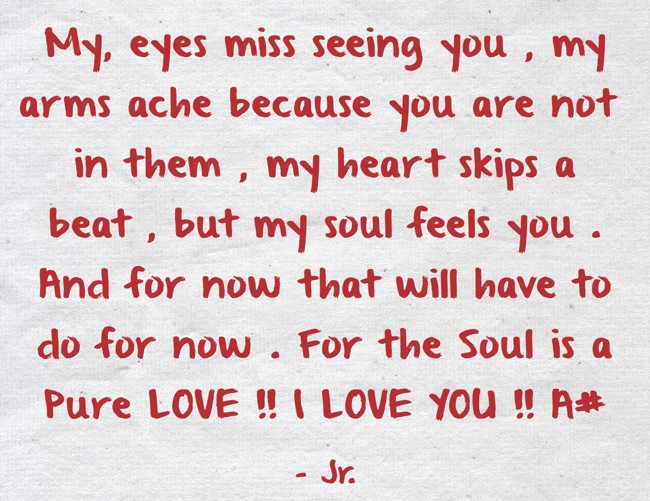 My, eyes miss seeing you , my
arms ache because you are not
in them , my heart skips a
beat , but my soul feels you .
And for now that will have to
do for now . For the Soul is a
Pure LOVE !! I LOVE YOU !! A#
- Jr.